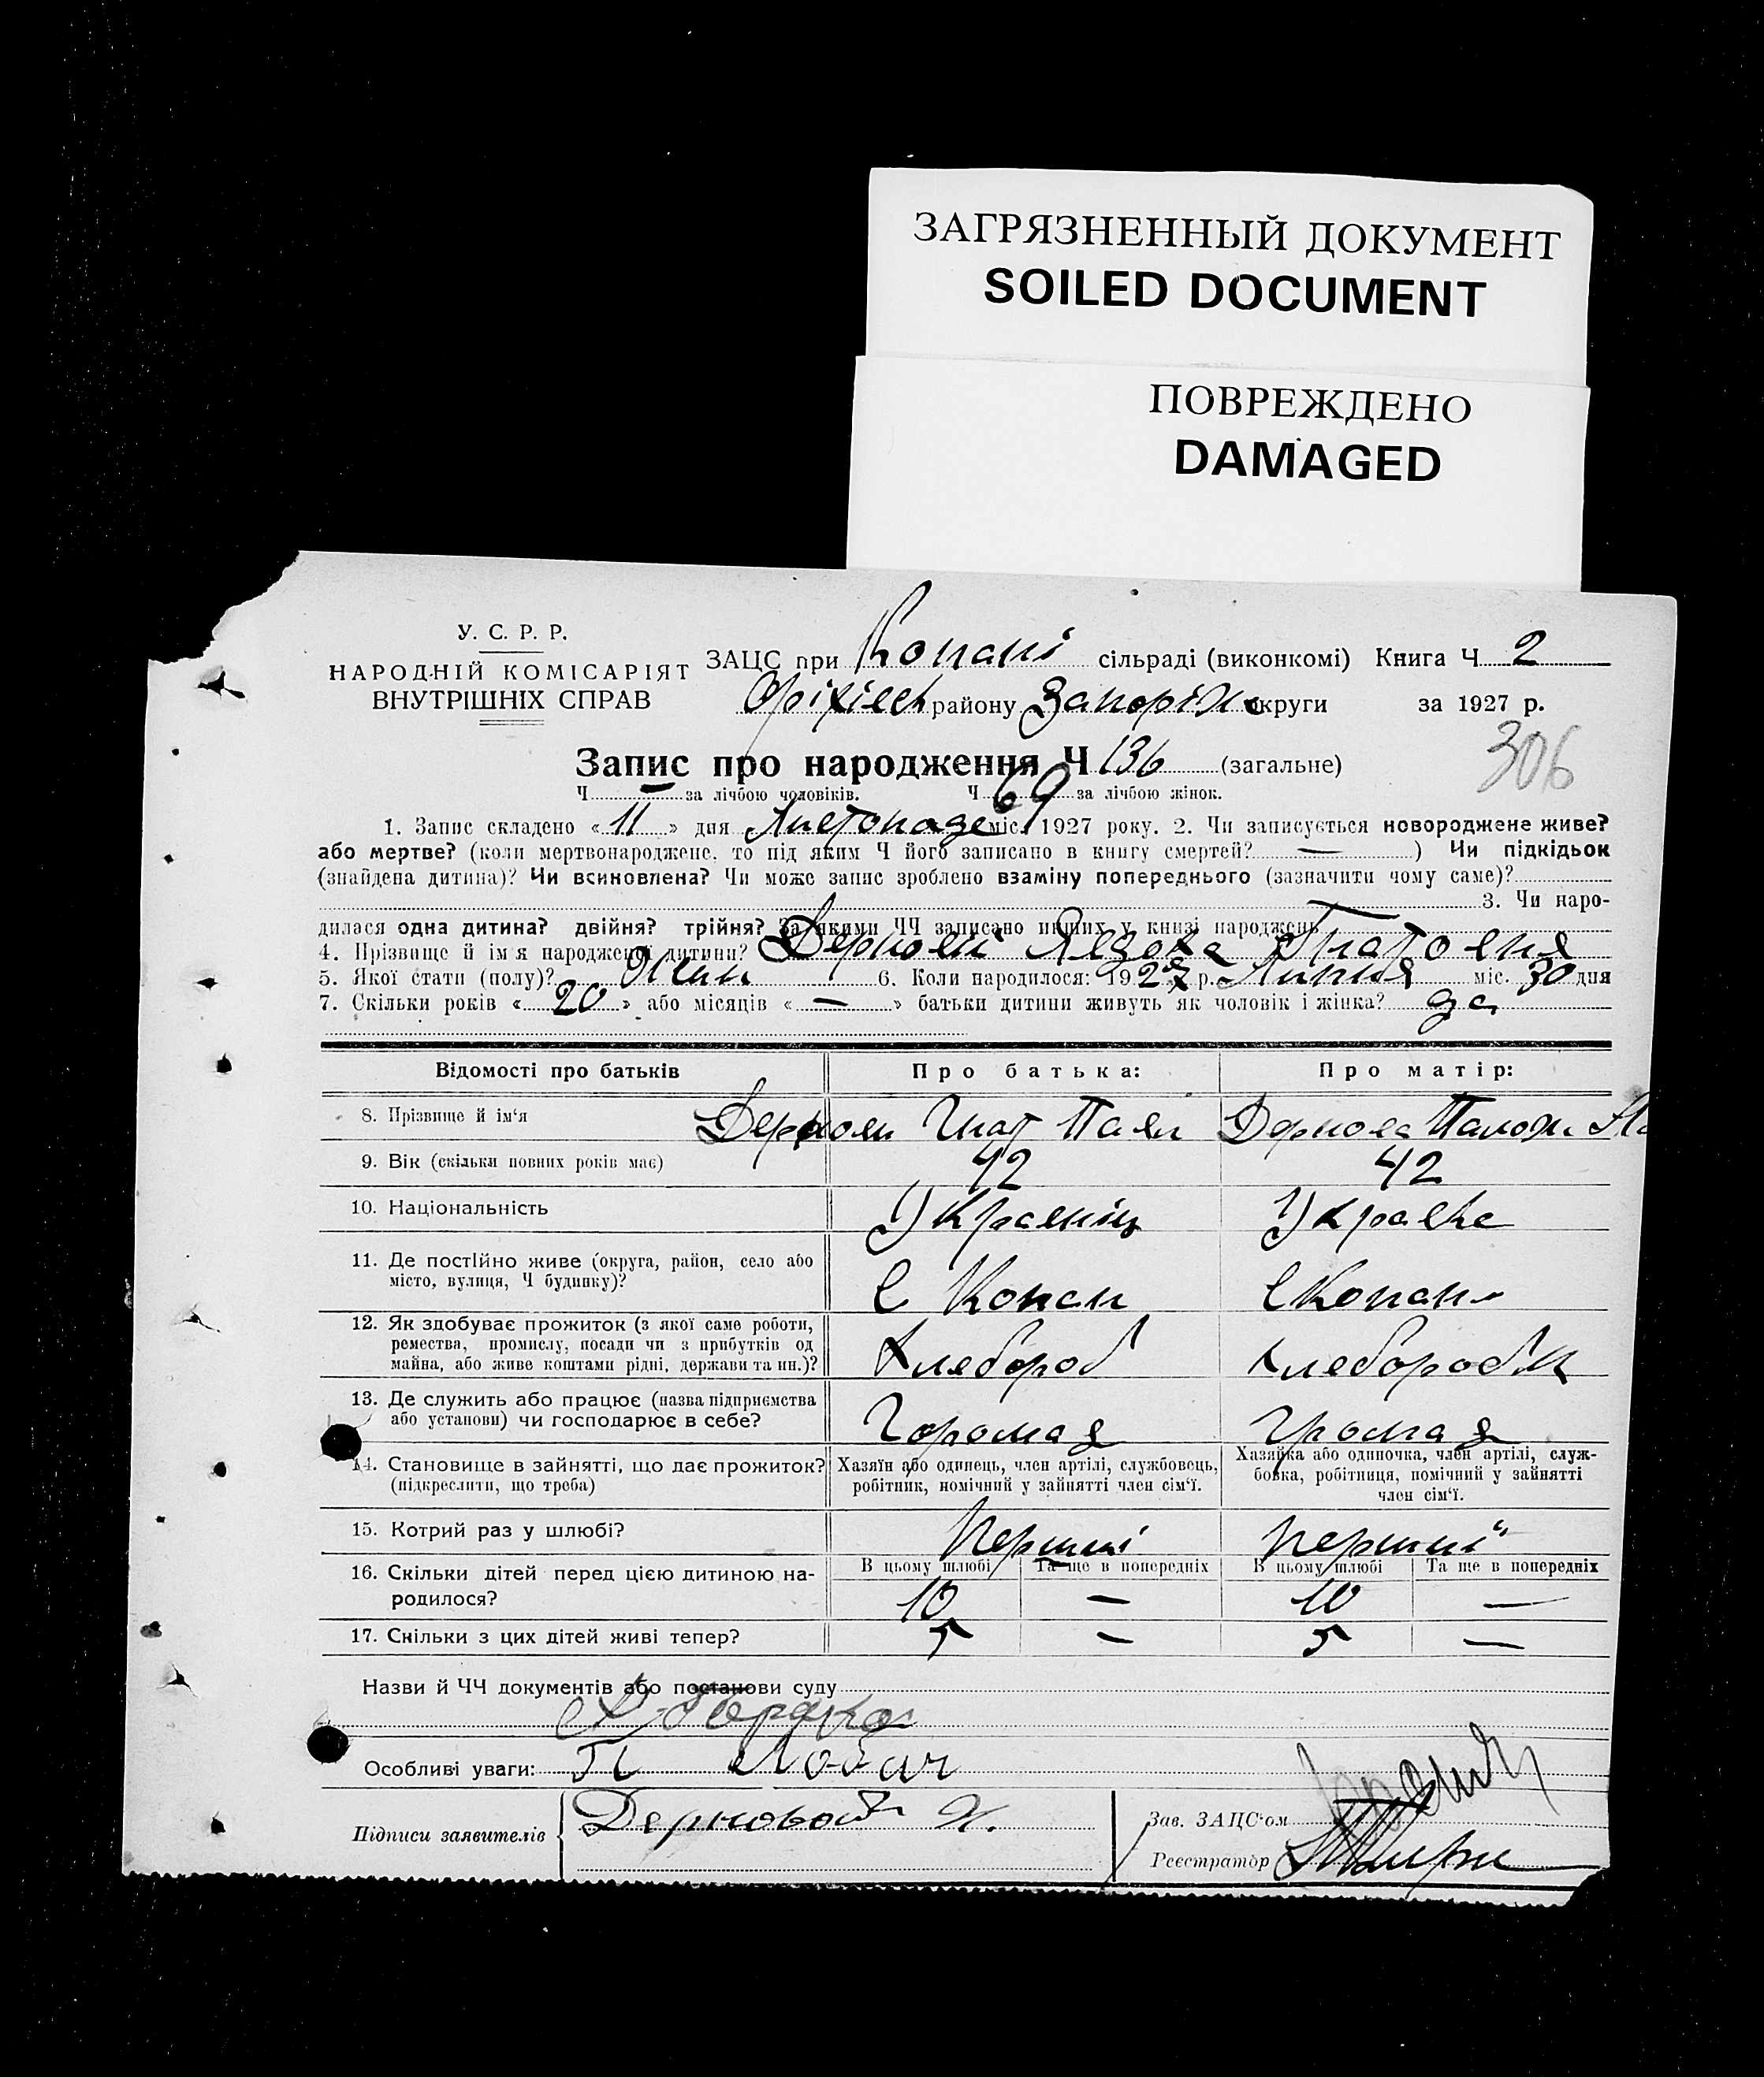 ЗАГРЯЗНЕННЫЙ ДОКУМЕНТ
SOILED DOCUMENT
ПОВРЕЖДЕНО
DAMAGED
У. С. Р. Р.
НАРОДНІЙ КОМІСАРІЯТ
ВНУТРІШНІХ СПРАВ
ЗАЦС при Копані сільраді (виконкомі) Книга Ч 2
району Запоріж округи за 1927 р.
306
Запис про народження Ч 136 (загальне)
Ч — за лічбою чоловіків. Ч 69 за лічбою жінок.
1. Запис складено « 11 » дня Листопаде міс. 1927 року. 2. Чи записується новороджене живе?
або мертве? (коли мертвонароджене, то під яким Ч його записано в книгу смертей? — ) Чи підкідьок
(знайдена дитина)? Чи всиновлена? Чи може запис зроблено взаміну попереднього (зазначити чому саме)?
3. Чи наро-
дилася одна дитина? двійня? трійня? За якими ЧЧ записано инших у книзі народжень
4. Прізвище й ім'я народженої дитини?
5. Якої стати (полу)? Жин 6. Коли народилося: 192 р. Липня міс. 30 дня
7. Скільки років « 20 » або місяців « — » батьки дитини живуть як чоловік і жінка? да
Відомості про батьків Про батька: Про матір:
8. Прізвище й ім'я
9. Вік (скільки повних років має) 42 42
10. Національність Украєніц Украєка
11. Де постійно живе (округа, район, село або
місто, вулиця, Ч будинку)? С Копан С Копани
12. Як здобуває прожиток (з якої саме роботи,
ремества, промислу, посади чи з прибутків од
майна, або живе коштами рідні, держави та ин.)? Хлебороб
13. Де служить або працює (назва підприємства
або установи) чи господарює в себе?
14. Становище в зайнятті, що дає прожиток?
(підкреслити, що треба)
Хазяїн або одинець, член артілі, службовець,
робітник, помічний у зайнятті член сім'ї.
Хазяйка або одиночка, член артілі, служ-
бовка, робітниця, помічний у зайнятті
член сім'ї.
15. Котрий раз у шлюбі? Перший Перший
16. Скільки дітей перед цією дитиною на-
родилося?
В цьому шлюбі Та ще в попередніх В цьому шлюбі Та ще в попередніх
10 — 10 —
17. Скільки з цих дітей живі тепер? 5 — 5 —
Назви й ЧЧ документів або постанови суду
Особливі уваги:
Підписи заявителів
Зав. ЗАЦС'ом
Реєстратор